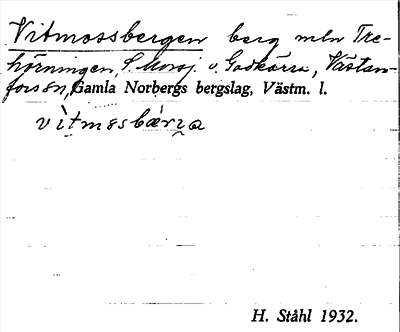 Vitmossbergen berg mln Tre-
hörningen, S. Morsj. o. Godkärra, Västan-
fors sn, Gamla Norbergs bergslag, Västm. l.
vìtmɷsbærɩa
H. Ståhl 1932.